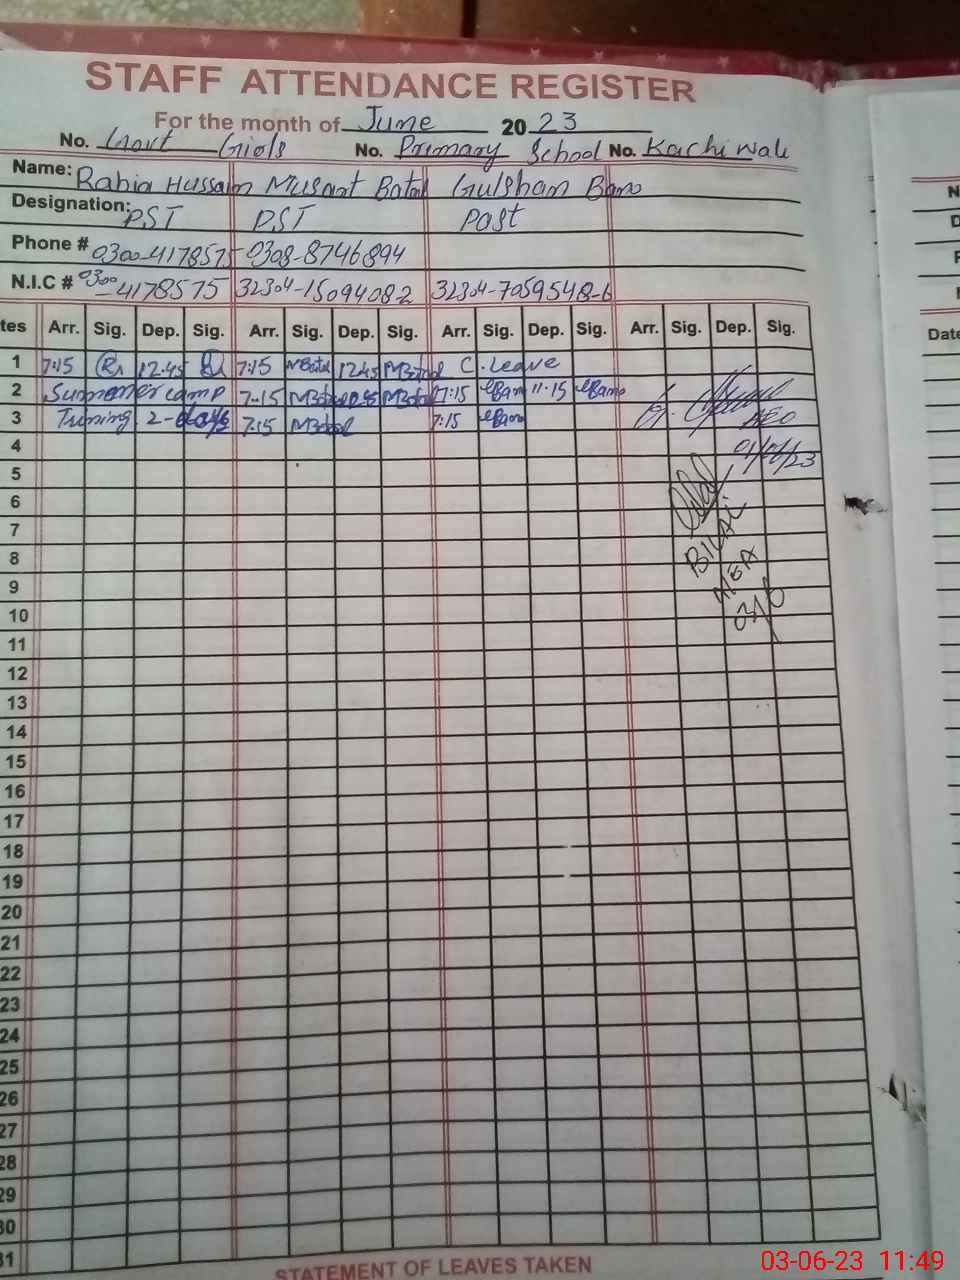 STAFF ATTENDANCE REGISTER
For the month of June 2023
No. Govt Girls No. Primary School No. Kachi wali
Name: Rabia Hussain Musart Batol Gulshan Bano
Designation: PST PST Past
Phone # 0300-4178575 0308-8746894
N.I.C # 0300-4178575 32304-1509408-2 32304-7059548-6
tes Arr. Sig. Dep. Sig. Arr. Sig. Dep. Sig. Arr. Sig. Dep. Sig. Arr. Sig. Dep. Sig.
1 7:15 12:45 7:15 MBatol 12:45 MBatol C. Leave
2 Summer camp 7:15 MBatol MBatol 7:15 GBano 11:15 GBano
3 Training 2-days 7:15 MBatol 7:15 GBano AEO
4 01/06/23
5
6
7
8 BILAL
9 MEA
10 03/6
11
12
13
14
15
16
17
18
19
20
21
22
23
24
25
26
27
28
29
30
31
STATEMENT OF LEAVES TAKEN
N
D
P
Date
03-06-23 11:49